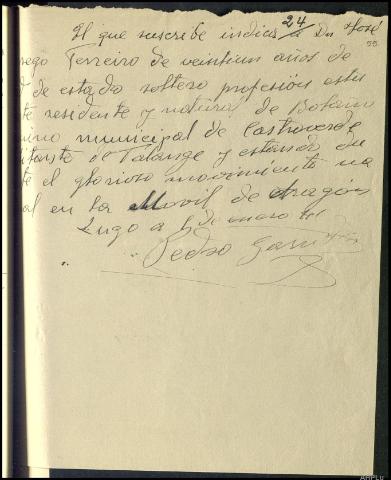 24
El que suscribe indica a Dn José
55
rego Ferreiro de veintiun años de
d de estado soltero profesión estu
te residente y natural de Bolaño
ino municipal de Castroverde
de Falange y estando du
te el glorioso movimiento na
al en la Movil de Aragón
Lugo a 6 de enero
Pedro
AHPLU